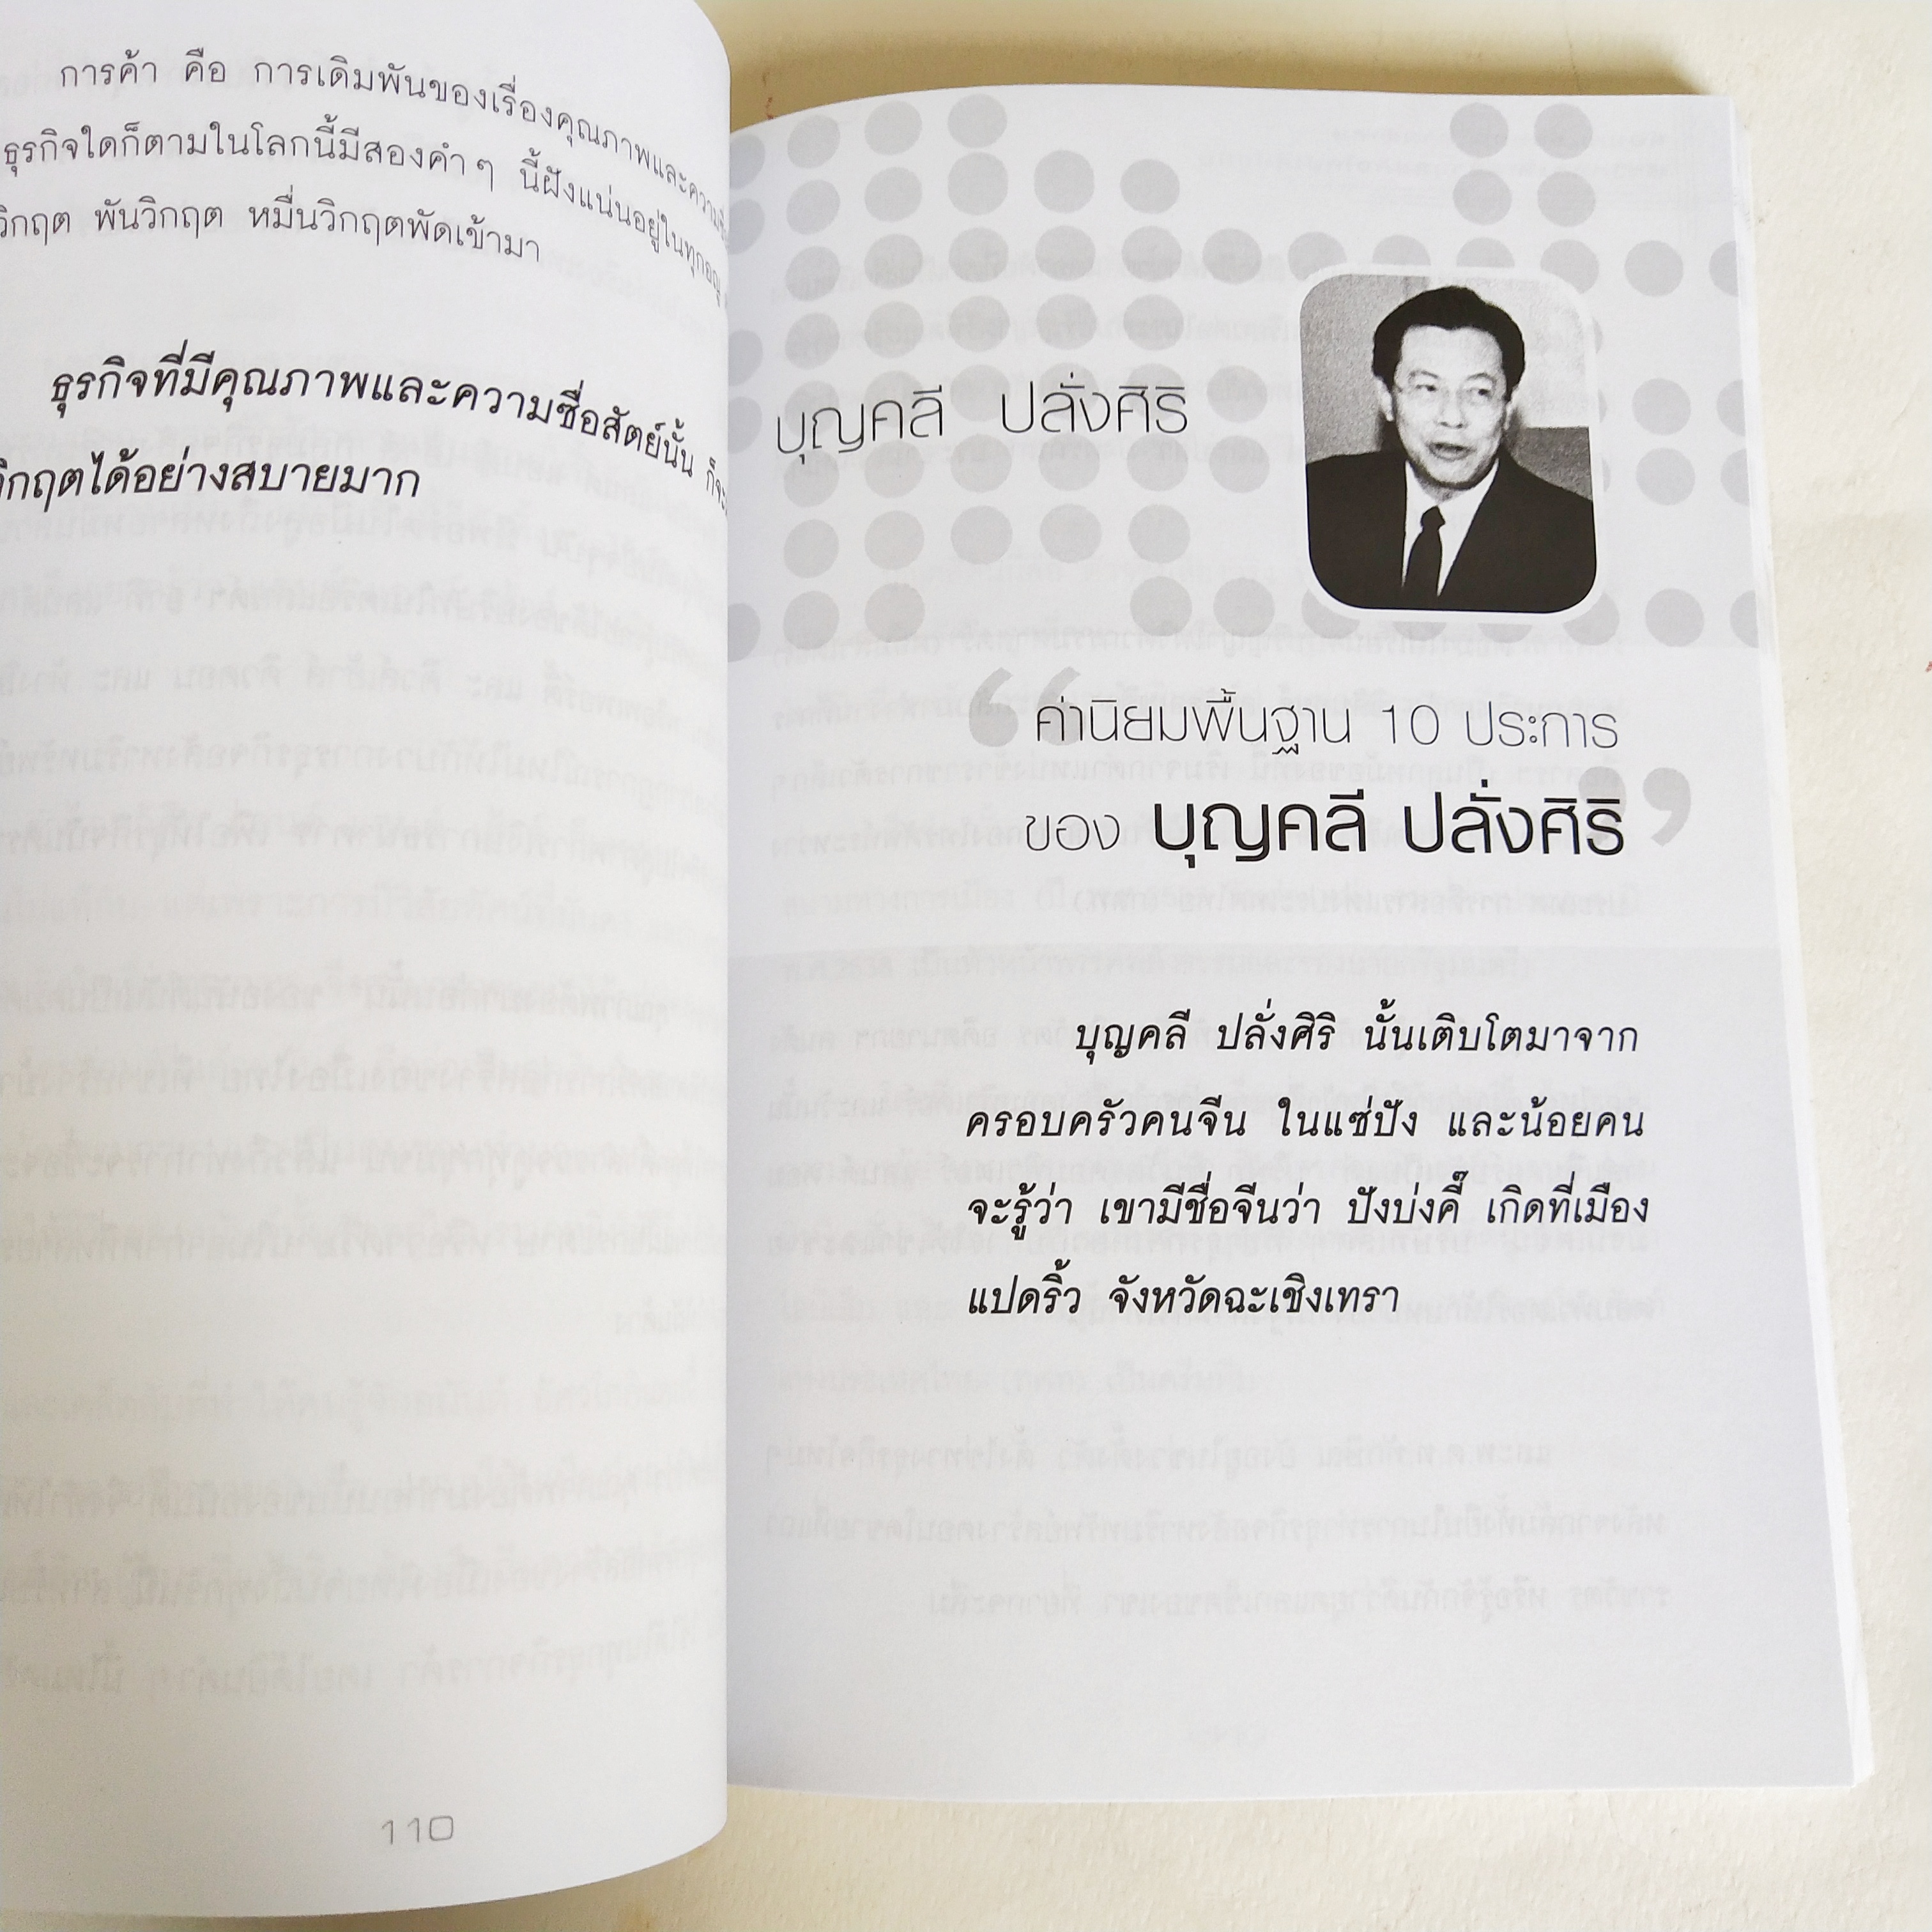 การค้า คือ การเดิมพันของเรื่องคุณภาพและความ
ธุรกิจใดก็ตามในโลกนี้มีสองคำๆ นี้ฝังแน่นอยู่ในทุก
วิกฤต พันวิกฤต หมื่นวิกฤตพัดเข้ามา
ธุรกิจที่มีคุณภาพและความซื่อสัตย์นั้น ก็จะ
วิกฤตได้อย่างสบายมาก
110
บุญคลี ปลั่งศิริ
“ค่านิยมพื้นฐาน 10 ประการ
ของ บุญคลี ปลั่งศิริ”
บุญคลี ปลั่งศิริ นั้นเติบโตมาจาก
ครอบครัวคนจีน ในแซ่ปัง และน้อยคน
จะรู้ว่า เขามีชื่อจีนว่า ปังบ่งคี๊ เกิดที่เมือง
แปดริ้ว จังหวัดฉะเชิงเทรา